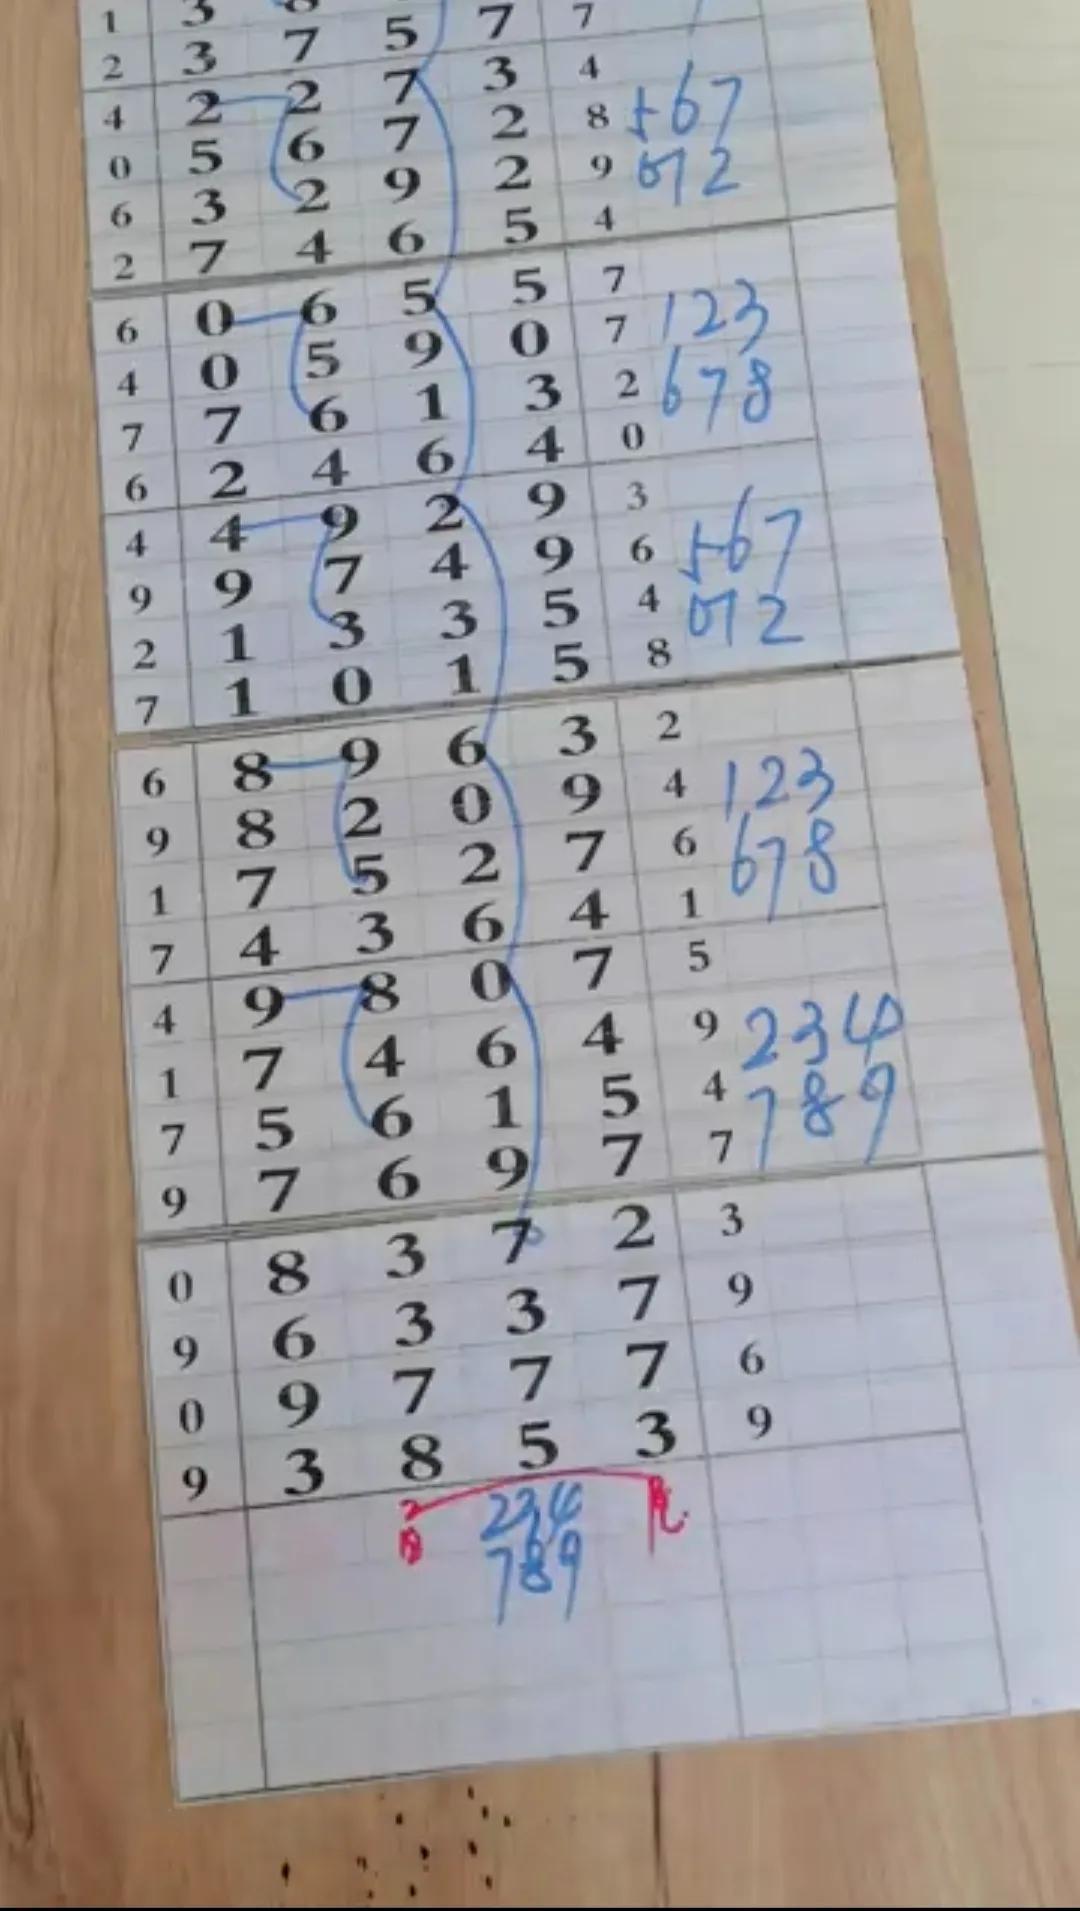 1 3 8
2 3 7 5 7 7
4 2 2 7 3 4
0 5 6 7 2 8 567
6 3 2 9 2 9 072
2 7 4 6 5 4
6 0 6 5 5 7
4 0 5 9 0 7 123
7 7 6 1 3 2 678
6 2 4 6 4 0
4 4 9 2 9 3
9 9 7 4 9 6 567
2 1 3 3 5 4 012
7 1 0 1 5 8
6 8 9 6 3 2
9 8 2 0 9 4 123
1 7 5 2 7 6 678
7 4 3 6 4 1
4 9 8 0 7 5
1 7 4 6 4 9 234
7 5 6 1 5 4 789
9 7 6 9 7 7
0 8 3 7 2 3
9 6 3 3 7 9
0 9 7 7 7 6
9 3 8 5 3 9
234
789